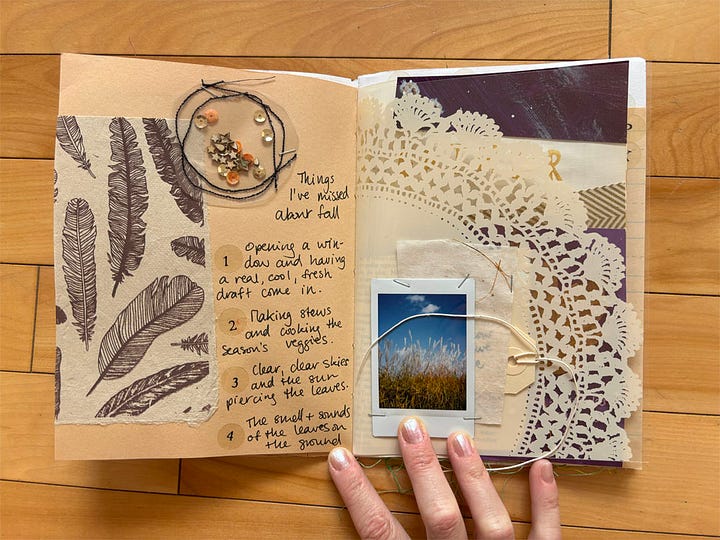 Things
I've missed
about fall
1 Opening a win-
dow and having
a real, cool, fresh
draft come in.
2 Making stews
and cooking the
season's veggies.
3 Clear, clear skies
and the sun
piercing the leaves.
4 The smell + sounds
of the leaves on
the ground
R